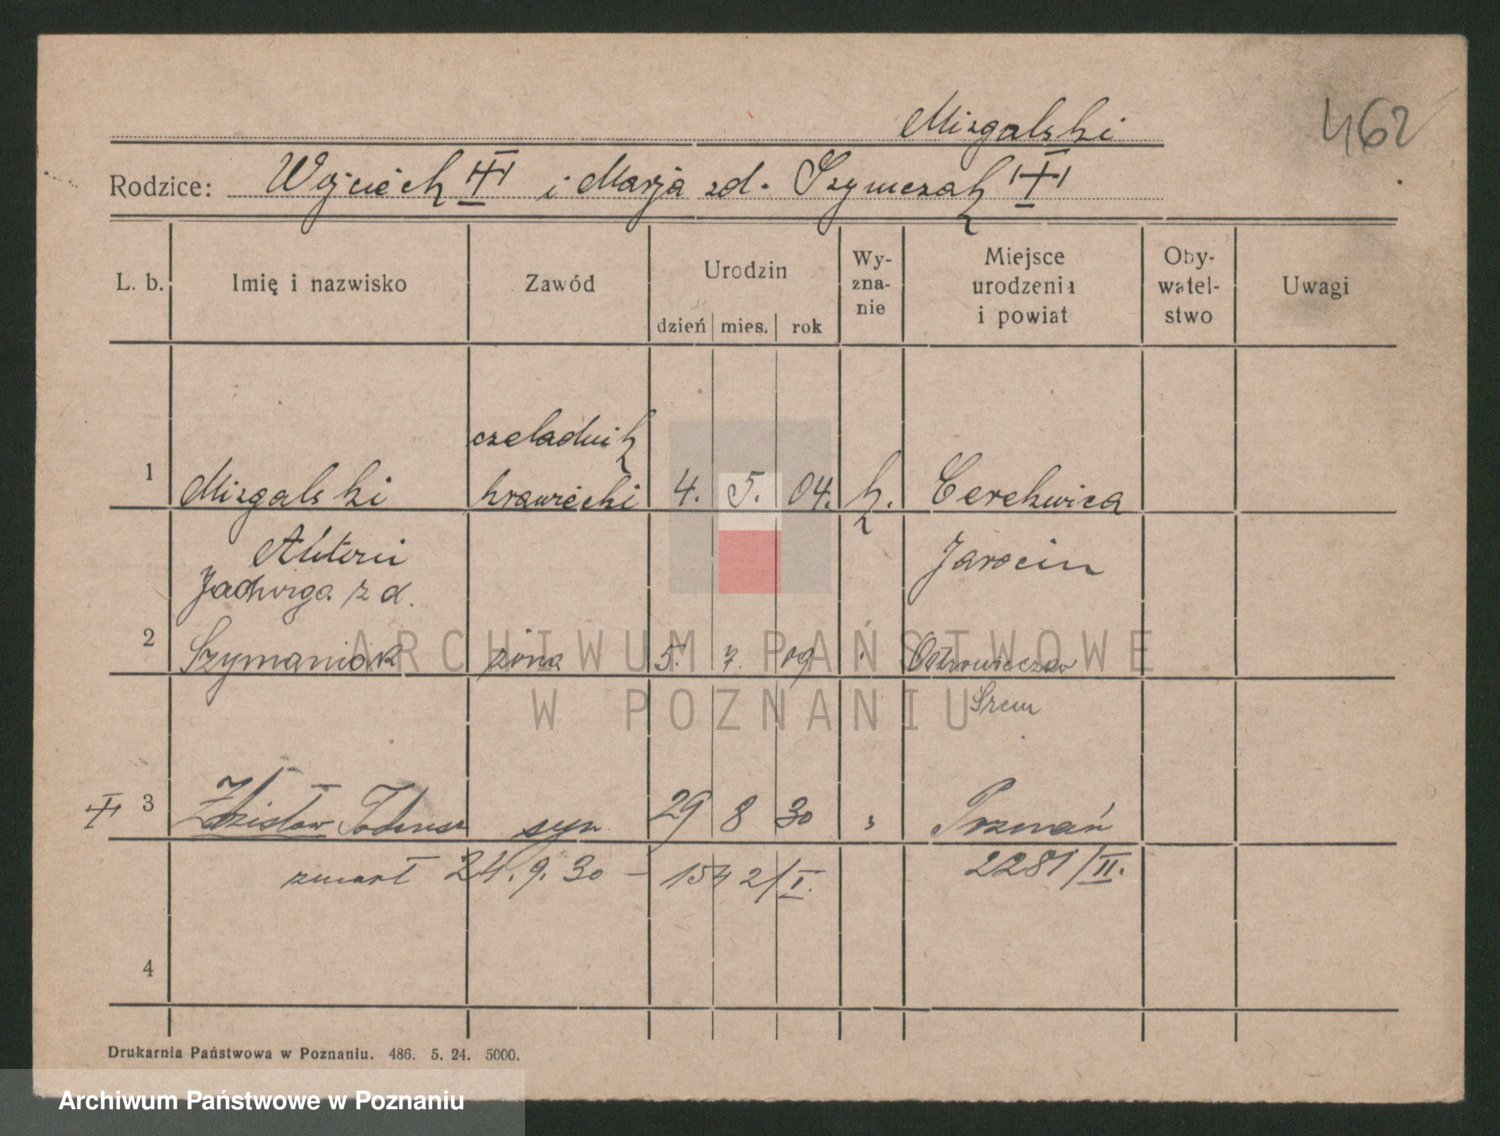 Mizgalski
462
Rodzice: Wojciech i Marja zd. Szymczak
L. b. Imię i nazwisko Zawód Urodzin Wy-zna-nie Miejsce urodzenia i powiat Oby-watel-stwo Uwagi
dzień mies. rok
czeladnik
1 Mizgalski krawiecki 4. 5. 04. k. Cerekwica
Antoni Jarocin
Jadwiga zd.
2 Szymaniak żona 5. 7. 09 "
Szrem
3 Zdzisław Tadeusz syn 29 8 30 " Poznań
zmarł 24. 9. 30 – 1542/I. 2281/II.
4
Drukarnia Państwowa w Poznaniu. 486. 5. 24. 5000.
ARCHIWUM PAŃSTWOWE
W POZNANIU
Archiwum Państwowe w Poznaniu